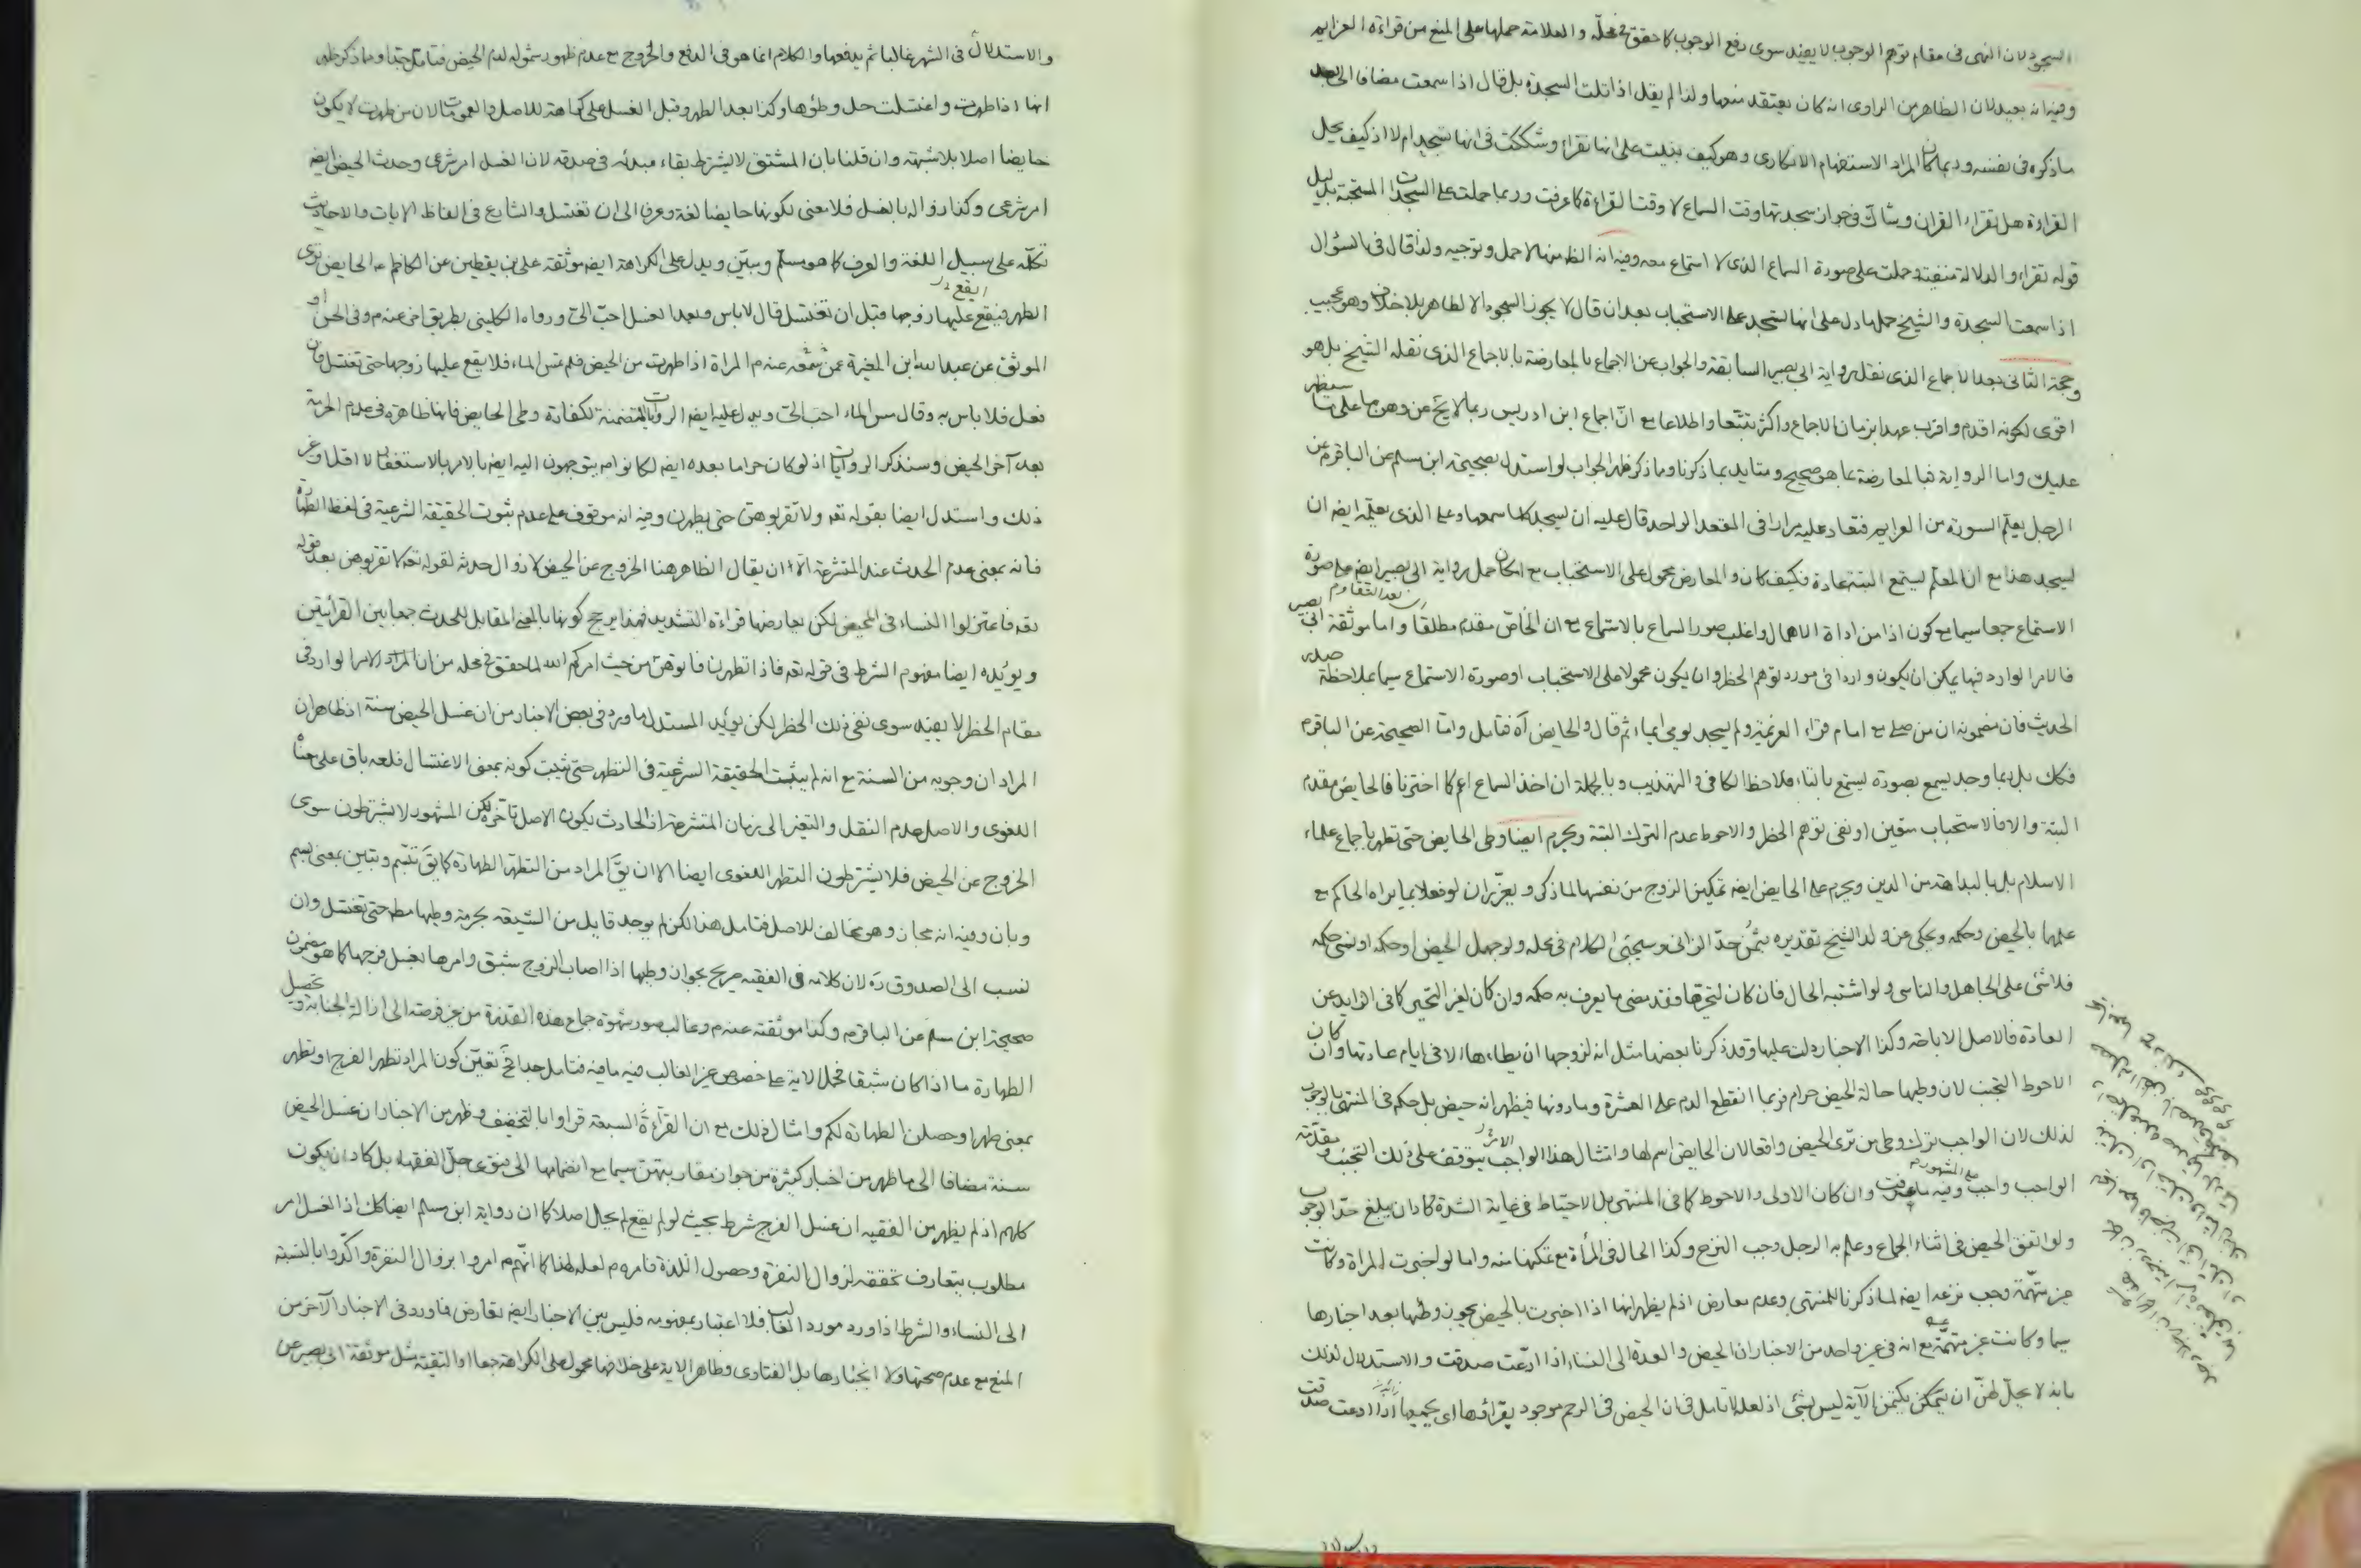 السجود لان النهى فى مقام توهم الوجوب لا يفيد سوى رفع الوجوب كما حقق فى محلّه و العلامة حملها على المنع من قراءة العزايم
وفيه انه بعيد لان الظاهر من الراوى انه كان يعتقد منعها ولذا لم يقل اذا تلت السجدة بل قال اذا سمعت مضافا الى بعد
ما ذكره فى نفسه وربما كان المراد الاستفهام الانكارى وهو كيف بنيت على انها تقراء وشككت فى انها تسجد ام لا اذ كيف يحل
القراءة هل تقراء القران وشاك فى جواز سجدتها وقت السماع لا وقت القراءة كما عرفت وربما حملت على السجدات المستحبة بدليل
قوله تقراء و الدلالة منفية وحملت على صورة السماع الذى لا استماع معه وفيه انه الظ منها لا حمل وتوجيه ولذا قال فى السؤال
اذا سمعت السجدة و الشيخ حمل ما دل على انها تسجد على الاستحباب بعد ان قال لا يجوز السجود الا لطاهر بلا خلاف وهو عجيب
وحجة الثانى بعد الاجماع الذى نقل رواية ابى بصير السابقة والجواب عن الاجماع بالمعارضة بالاجماع الذى نقله الشيخ بل هو
اقوى لكونه اقدم و اقرب عهدا بزمان الاجماع واكثر تتبّعا واطلاعا مع انّ اجماع ابن ادريس ربما لا يخ عن وهن ما على ما سيظهر
عليك واما الرواية فبالمعارضة بما هو صحيح و متايد بما ذكرنا وما ذكر ظهر الجواب لو استدل بصحيحة ابن مسلم عن الباقر م عن
الرجل يعلّم السورة من العزايم فتعاد عليه مرارا فى المقعد الواحد قال عليه ان يسجد كلما سمعها وعلى الذى يعلّمه ايضه ان
يسجد هذا مع ان المعلّم يستمع البتة عادة وكيف كان و المعارض محمول على الاستحباب مع امكان حمل رواية ابى بصير ايضه على صورة
الاستماع جمعا سيما مع كون اذا من اداة الاهمال و اغلب صور السماع بالاستماع مع ان الخاصّ مقدم مطلقا و اما موثقة ابى بصير
فالامر الوارد فيها يمكن ان يكون واردا فى مورد توهم الحظر وان يكون محمولا على الاستحباب او صورة الاستماع سيما بملاحظة صدر
الحديث فان مضمونه ان من صلى مع امام قراء العزيمة ولم يسجد يومى ايماء ثم قال والحايض آه فتامل واما الصحيحة عن الباقر م
فكك بل ربما وجد يسمع بصورة يستمع بالتاء فلاحظ الكافى و التهذيب و بالجملة ان اخذ السماع اعم كما اخترنا فالحايض مقدم
البتة والا فالاستحباب متعين او نفى توهم الحظر والاحوط عدم الترك البتة ويحرم ايضا وطى الحايض حتى تطهر باجماع علماء
الاسلام بل بالبداهة من الدين ويحرم على الحايض ايضه تمكين الزوج من نفسها لما ذكر و يعزّران لو فعلا بما يراه الحاكم مع
علمهما بالحيض وحكمه وحكى عن ولد الشيخ تقديره بثُمن حدّ الزانى وسيجئ الكلام فى محله ولو جهل الحيض او حكمه او نسى حكمه
فلا شئ على الجاهل والناسى ولو اشتبه الحال فان كان لتحيّرها فقد مضى ما يعرف به حكمه وان كان لغير التحير كما فى الزايد عن
العادة فالاصل الاباحة وكذا الاخبار دلت عليها وقد ذكرنا بعضها مثل انه لزوجها ان يطاءها الا فى ايام عادتها وان كان
الاحوط التجنب لان وطيها حالة الحيض حرام فربما انقطع الدم على العشرة وما دونها فيظهر انه حيض بل حكم فى المنتهى بالوجوب
لذلك لان الواجب ترك وطى من ترى الحيض واقعا لان الحايض اسم لها وامتثال هذا الواجب يتوقف على ذلك التجنب ومقدّمة
الواجب واجب وفيه ما عرفت وان كان الاولى والاحوط كما فى المنتهى بل الاحتياط فى غاية الشدة كاد ان يبلغ حدّ الوجوب
ولو اتفق الحيض فى اثناء الجماع وعلم به الرجل وجب النزع وكذا الحال فى المرأة مع تمكنها منه واما لو اخبرت المراة وكانت
غير متّهمّة وجب نزعه ايضه لما ذكرنا للمنتهى وعدم معارض اذ لم يظهر انها اذا اخبرت بالحيض يجوز وطئها بعد اخبارها
سيما وكانت غير متهمّة مع انه فى غير واحد من الاخبار ان الحيض و العدة الى النساء اذا ادّعت صدقت و الاستدلال لذلك
بانه لا يحلّ لهنّ ان يكتمن الآية ليس بشئ اذ لعله لا تامل فى ان الحيض فى الرحم موجود اذا ادعت صدقت
والاستدلال فى الشهر غالبا ثم يدفعها والكلام انما هو فى الدفع والخروج مع عدم ظهور شموله لدم الحيض فتامل جدا وما ذكر ظهر
انها اذا طهرت و اغتسلت حل وطؤها وكذا بعد الطهر وقبل الغسل على كراهة للاصل والعمومات الا ان من طهرت لا يكون
حايضا اصلا بلا شبهة وان قلنا بان المشتق لا يشترط بقاء مبدئه فى صدقه لان الغسل امر شرعى وحدث الحيض ايضه
امر شرعى وكذا زواله بالغسل فلا معنى لكونها حايضا لغة وعرفا الى ان تغتسل والشايع فى الفاظ الايات والاحاديث
كلّه على سبيل اللغة والعرف كما هو مسلم وبيّن ويدل على الكراهة ايضه موثقة على بن يقطين عن الكاظم م الحايض ترى
الطهر فيقع عليها زوجها قبل ان تغتسل قال لا باس وبعد الغسل احبّ الىّ ورواه الكلينى بطريق اخر عنه م وفى الحسن او
الموثق عن عبد الله ابن المغيرة عمن سمعه عنه م المراة اذا طهرت من الحيض فلم تمس الماء فلا يقع عليها زوجها حتى تغتسل فان
فعل فلا باس به وقال مس الماء احبّ الىّ ويدل عليه ايضه الروايات المتضمنة لكفارة وطى الحايض فانها ظاهرة فى عدم الحرمة
بعد آخر الحيض وسنذكر الروايات اذ لو كان حراما بعده ايضه لكانوا م يتوجهون اليه ايضه بالامر بالاستغفار لا اقل او غير
ذلك و استدل ايضا بقوله تعه ولا تقربوهن حتى يطهرن وفيه انه موقوف على عدم ثبوت الحقيقة الشرعية فى لفظ الطهارة
فانه بمعنى عدم الحدث عند المتشرعة الا ان يقال الظاهر هنا الخروج عن الحيض لا زوال حدثه لقوله تعه لا تقربوهن بعد قوله
تعه فاعتزلوا النساء فى المحيض لكن يعارضها قراءة التشديد فهذا يرجح كونها بالمعنى المقابل للحدث جمعا بين القرائتين
و يؤيّده ايضا مفهوم الشرط فى قوله تعه فاذا تطهرن فاتوهنّ من حيث امركم الله لما حقق فى محله من ان المراد الامر الوارد فى
مقام الحظر لا يفيد سوى نفى ذلك الحظر لكن يؤيد المستدل ما ورد فى بعض الاخبار من ان غسل الحيض سنة اذ ظاهر ان
المراد ان وجوبه من السنة مع انه لم يثبت الحقيقة الشرعية فى التطهر حتى يثبت كونه بمعنى الاغتسال فلعه باق على معناه
اللغوى والاصل عدم النقل و التغير الى زمان المتشرعة اذ الحادث يكون الاصل تاخره لكن المشهور لا يشترطون سوى
الخروج عن الحيض فلا يشترطون التطهر اللغوى ايضا الا ان يقَ المراد من التطهر الطهارة كما يقَ تبسّم وتبيّن بمعنى بسم
وبان وفيه انه مجاز وهو مخالف للاصل فتامل هذا لكن لم يوجد قايل من الشيعة بحرمة وطيها مط حتى تغتسل وان
نسب الى الصدوق ره لان كلامه فى الفقيه صريح بجواز وطيها اذا اصاب الزوج شبق وامرها بغسل فرجها كما هو مضمون
صحيحة ابن مسلم عن الباقر م وكذا موثقته عنه م وغالب صور شهوة جماع هذه القذرة من غير فرصة الى ازالة الجنابة وتحصيل
الطهارة ما اذا كان شبقا فحمل الاية على خصوص غير الغالب فيه ما فيه فتامل جدا فح تعيّن كون المراد تطهر الفرج او تطهر
بمعنى طهر او حصلن الطهارة لكم وامثال ذلك مع ان القرآءة السبعة قراوا بالتخفيف وظهر من الاخبار ان غسل الحيض
سنة مضافا الى ما ظهر من اخبار كثيرة من جواز مقاربتهنّ سيما مع انضمامها الى فتوى جلّ الفقهاء بل كاد ان يكون
كلهم اذ لم يظهر من الفقيه ان غسل الفرج شرط بحيث لو لم يقع لم يحل اصلا كما ان رواية ابن مسلم ايضا كك اذ الغسل امر
مطلوب يتعارف تحققه لزوال النفرة وحصول اللذة فامرهم لعله لهذا كما انهم م امروا بزوال النفرة واكدوا بالنسبة
الى النساء والشرط اذا ورد مورد الغالب فلا اعتبار بمفهومه فليس بين الاخبار ايضه تعارض فما ورد فى الاخبار الآخر من
المنع مع عدم صحتها ولا انجبارها بل الفتاوى وظاهر الاية على خلافها محمول على الكراهة جمعا او التقية مثل موثقة ابى بصير عن